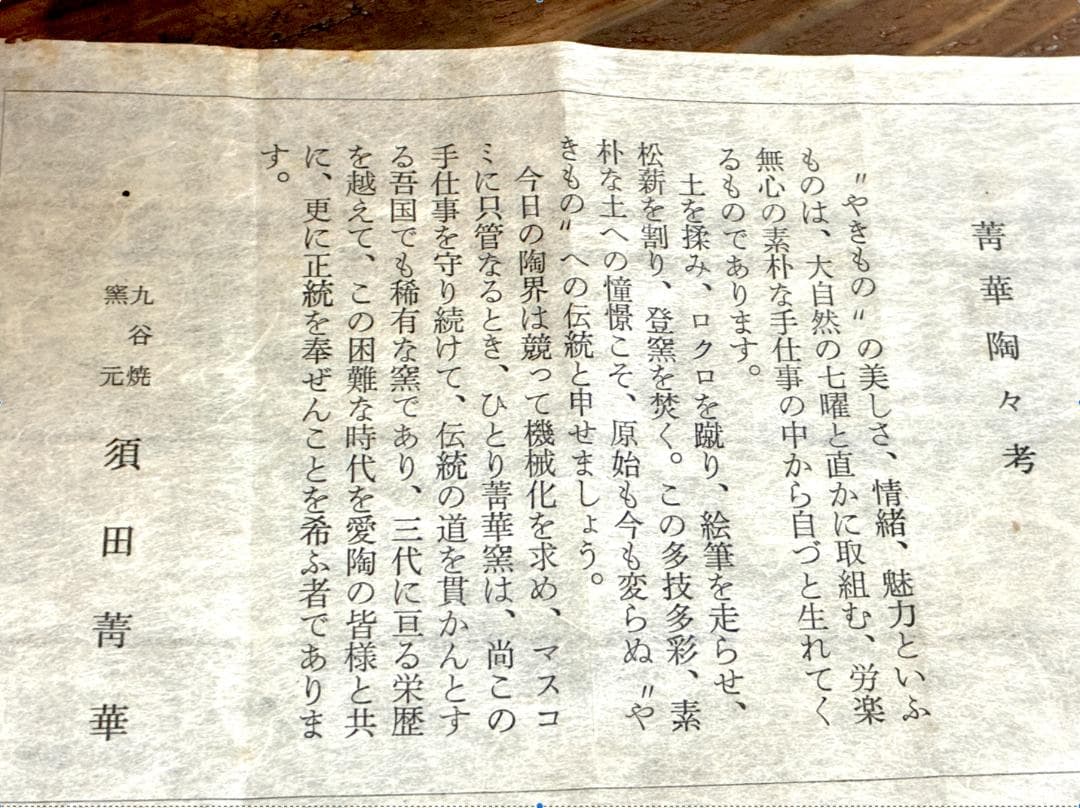 菁華陶々考
〃やきもの〃の美しさ、情緒、魅力といふ
ものは、大自然の七曜と直かに取組む、労楽
無心の素朴な手仕事の中から自づと生れてく
るものであります。
土を揉み、ロクロを蹴り、絵筆を走らせ、
松薪を割り、登窯を焚く。この多技多彩、素
朴な土への憧憬こそ、原始も今も変らぬ〃や
きもの〃への伝統と申せましょう。
今日の陶界は競って機械化を求め、マスコ
ミに只管なるとき、ひとり菁華窯は、尚この
手仕事を守り続けて、伝統の道を貫かんとす
る吾国でも稀有な窯であり、三代に亘る栄歴
を越えて、この困難な時代を愛陶の皆様と共
に、更に正統を奉ぜんことを希ふ者でありま
す。
九谷焼
窯元
須田菁華